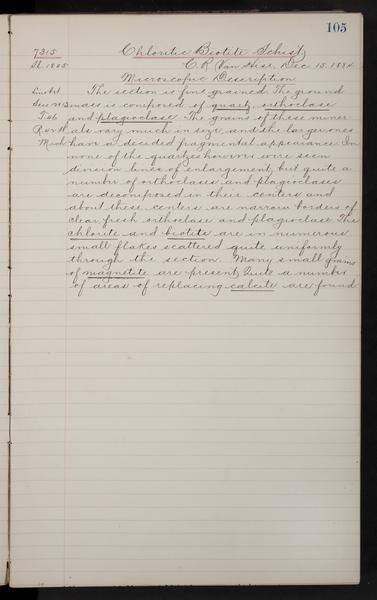 105
7315 Chloritic Biotite Schist
Sl. 1805 C. R. Van Hise, Dec. 15, 1884
Microscopic Description
The section is fine grained. The ground
mass is composed of quartz, orthoclase
T 46 and plagioclase. The grains of these miner
als vary much in size, and the larger ones
Mich have a decided fragmental appearance. In
none of the quartzes however were seen
division lines of enlargement, but quite a
number of orthoclases and plagioclases
are decomposed in their centers and
about these centers are narrow borders of
clear, fresh orthoclase and plagioclase. The
chlorite and biotite are in numerous
small flakes scattered quite uniformly
through the section. Many small grains
of magnetite are present. Quite a number
of areas of replacing calcite are found